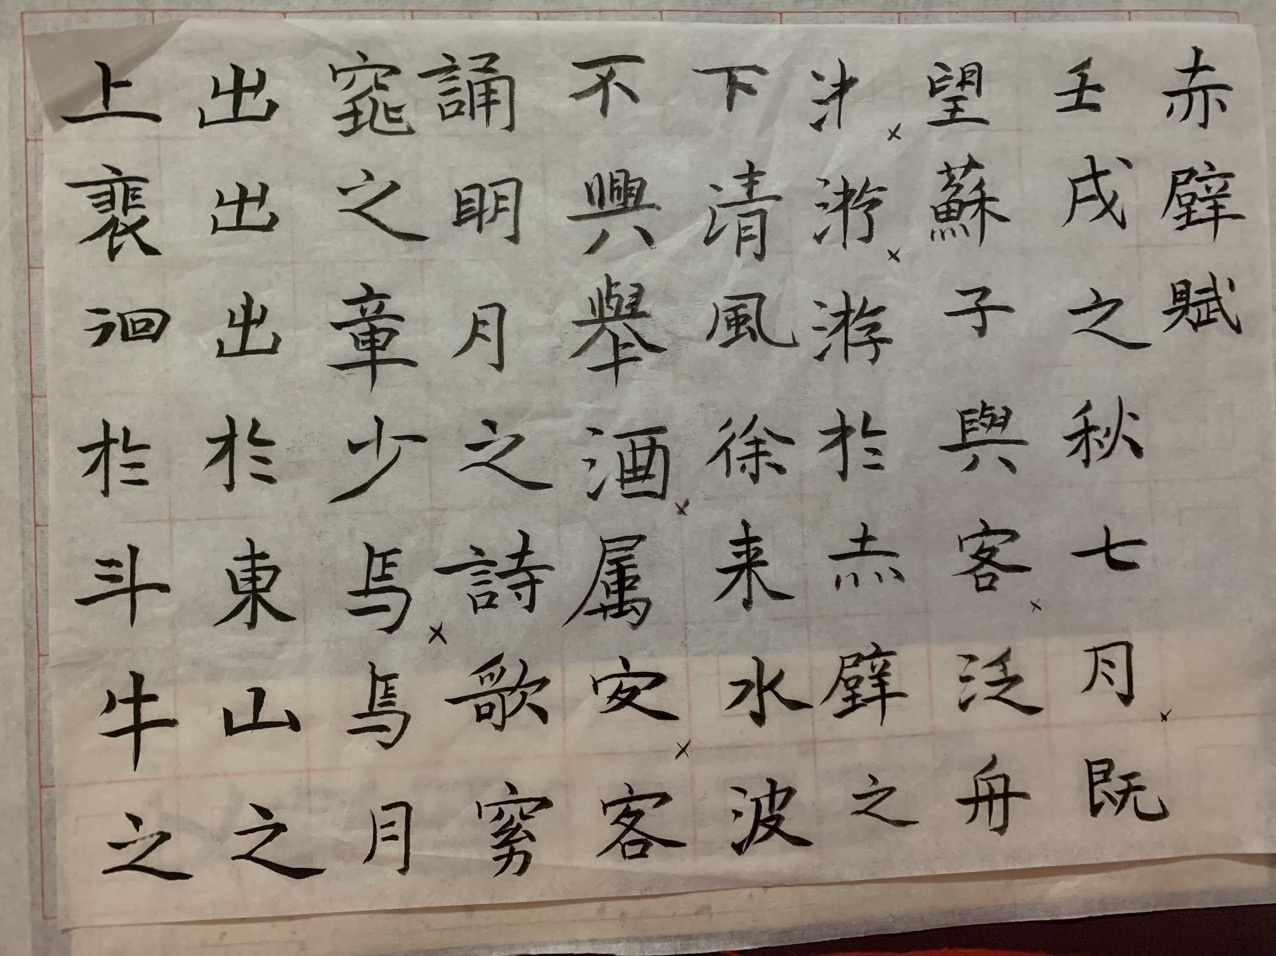 赤壁賦
壬戌之秋七月既
望蘇子與客泛舟
游游於赤壁之
下清風徐来水波
不興舉酒属安客
誦明月之詩歌窈
窕之章少焉焉月
出出出於東山之
上裴洄於斗牛之